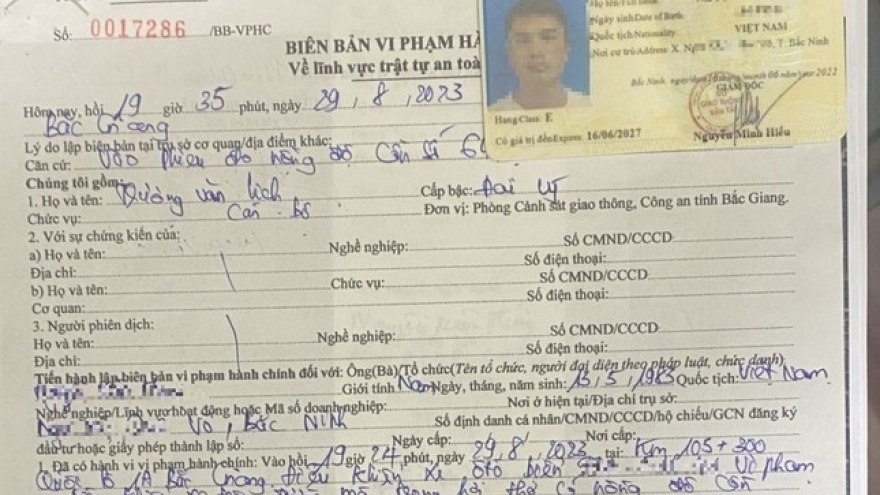 Số: 0017286 /BB-VPHC
BIÊN BẢN VI PHẠM HÀ
Về lĩnh vực trật tự an toà
Họ tên/Full name
Ngày sinh/Date of Birth
Quốc tịch/Nationality VIỆT NAM
Nơi cư trú/Address X. T. Bắc Ninh
Bắc Ninh, 2022
GIÁM ĐỐC
Hạng/Class: E
Có giá trị đến/Expires 16/06/2027
Nguyễn Minh Hiếu
Hôm nay, hồi 19 giờ 35 phút, ngày 29, 8, 2023
Bắc Giang
Lý do lập biên bản tại trụ sở cơ quan/địa điểm khác:
Căn cứ: vào phiếu đo nồng độ cồn số
Chúng tôi gồm:
1. Họ và tên: Dương văn lịch Cấp bậc: Đại uý
Chức vụ: Cán bộ Đơn vị: Phòng Cảnh sát giao thông, Công an tỉnh Bắc Giang.
2. Với sự chứng kiến của:
a) Họ và tên: Nghề nghiệp: Số CMND/CCCD
Địa chỉ: Số điện thoại:
b) Họ và tên: Chức vụ: Số CMND/CCCD
Cơ quan: Số điện thoại:
3. Người phiên dịch:
Họ và tên: Nghề nghiệp: Số CMND/CCCD
Địa chỉ: Số điện thoại:
Tiến hành lập biên bản vi phạm hành chính đối với: Ông(Bà)/Tổ chức(Tên tổ chức, người đại diện theo pháp luật, chức danh)
Giới tính Nam Ngày, tháng, năm sinh: 13, 5, 1983 Quốc tịch: Việt Nam
Nghề nghiệp/Lĩnh vực hoạt động hoặc Mã số doanh nghiệp: Nơi ở hiện tại/Địa chỉ trụ sở:
Võ, Bắc Ninh Số định danh cá nhân/CMND/CCCD/hộ chiếu/GCN đăng ký
đầu tư hoặc giấy phép thành lập số: Ngày cấp: Nơi cấp:
1. Đã có hành vi vi phạm hành chính: Vào hồi 19 giờ 24 phút, ngày 29, 8, 2023 tại: Km 105+300
Quốc lộ 1A Bắc Giang điều khiển xe ôtô biển vi phạm
hơi thở có nồng độ cồn